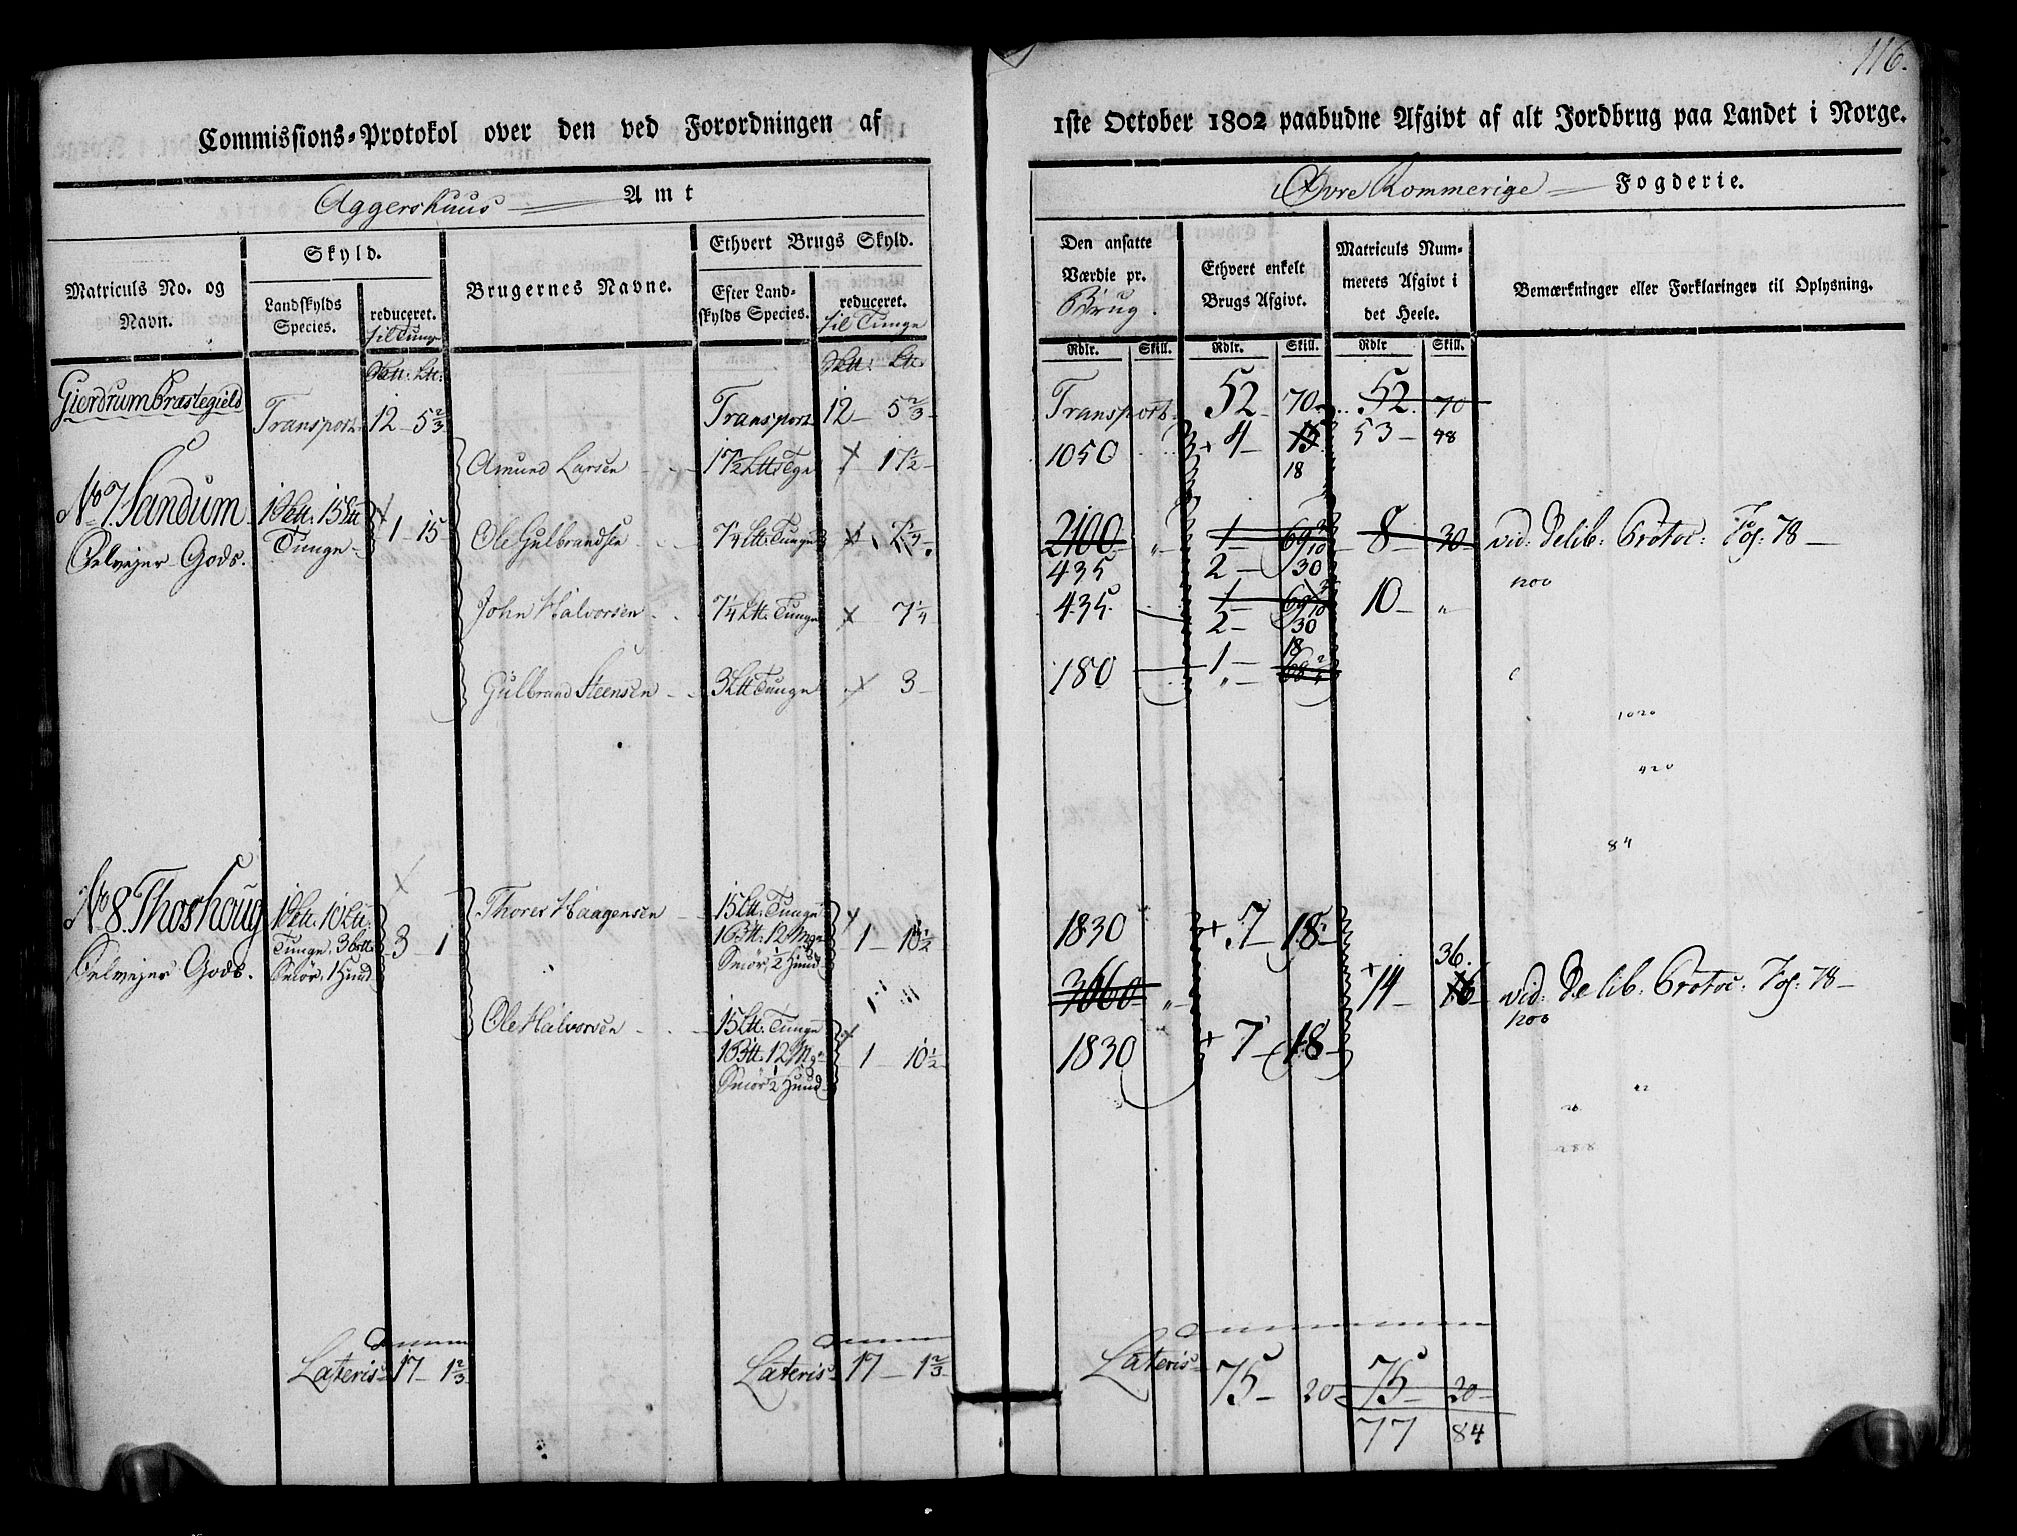 116.
Commissions-Protokol over den ved Forordningen af 1ste October 1802 paabudne Afgivt af alt Jordbrug paa Landet i Norge.
Aggershuus Amt
Øvre Rommerige Fogderie.
Matriculs No. og Navn.
Skyld.
Landskylds Species.
reduceret. til Tunge
Brugernes Navne.
Ethvert Brugs Skyld.
Efter Landskylds Species.
reduceret. til Tunge
Den ansatte Værdie pr. Brug.
Ethvert enkelt Brugs Afgivt.
Matriculs Nummerets Afgivt i det Heele.
Bemærkninger eller Forklaringer til Oplysning.
Rdlr. Skill. Rdlr. Skill. Rdlr Skill.
Gierdrum Præstegield
Transport 12 - 5 2/3 Transport 12 - 5 2/3 Transport 52 - 70 - 52 - 70
53 - 48
Amund Larsen 17 1/2 Ltt Tge 17 1/2 - 1050 4 - 15 18
No 7. Sandum 15 Ltt Tunge 1 - 15
Selvejer Gods.
Ole Gulbrandsen 7 1/4 Ltt. Tunge 7 1/4 2100 435 1 - 69 2 - 30 8 - 30 vid: Delib: Protoc: Fog: 78 -
John Halvorsen 7 1/4 Ltt. Tunge 7 1/4 435 1 - 69 2 - 30 10 - "
Gulbrand Steensen 3 Ltt Tunge 3 - 180 1 - 18 68
1020
420
84
No 8. Thoshoug 10 Ltt. Tunge, 3 Smör, 1 Hund 3 1
Selvejer Gods.
Thorer Haagensen 15 Ltt. Tunge 12 Smör, 1/2 Hund 1 - 10 1/2 1830 7 - 18 -
3660 " 14 - 16 36. vid: Delib: Protoc: Fog: 78 -
Ole Halvorsen 15 Ltt. Tunge 12 Smör 1/2 Hund 1 - 10 1/2 1830 7 - 18 -
288
Lateris 17 - 1 2/3 Lateris 17 - 1 2/3 Lateris 75 - 20 75 - 20
77 84